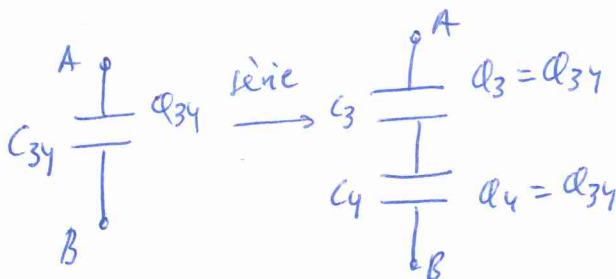 A
Q34
C34
B
série
A
C3
Q3 = Q34
C4
Q4 = Q34
B